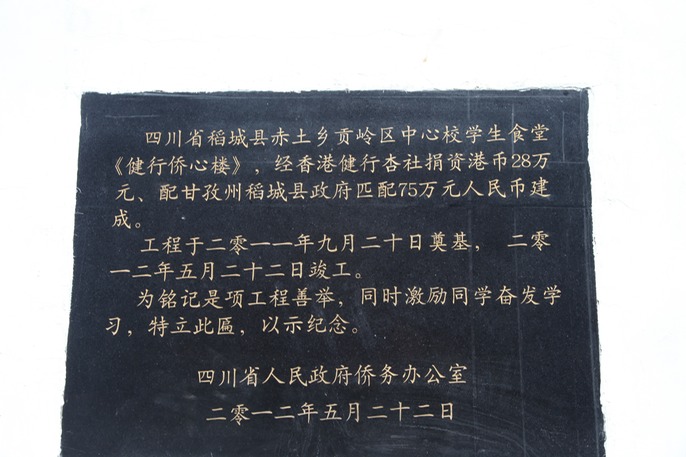 四川省稻城县赤土乡贡岭区中心校学生食堂
《健行侨心楼》，经香港健行杏社捐资港币28万
元、配甘孜州稻城县政府匹配75万元人民币建
成。
工程于二零一一年九月二十日奠基， 二零
一二年五月二十二日竣工。
为铭记是项工程善举，同时激励同学奋发学
习，特立此匾，以示纪念。
四川省人民政府侨务办公室
二零一二年五月二十二日